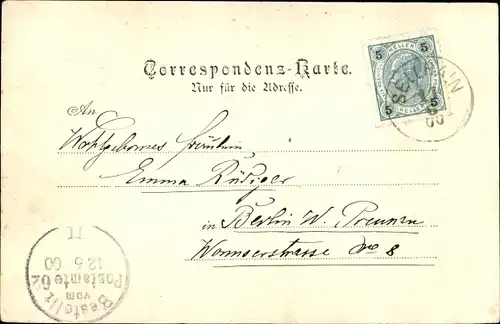 Correspondenz-Karte.
Nur für die Adresse.
5 HELLER 5
5 5
An
Wohlgebornes Fräulein
Emma Rüdiger
in Berlin W.
Wormserstrasse No 8
Bestellt
vom
Postamte 62
12 6 00